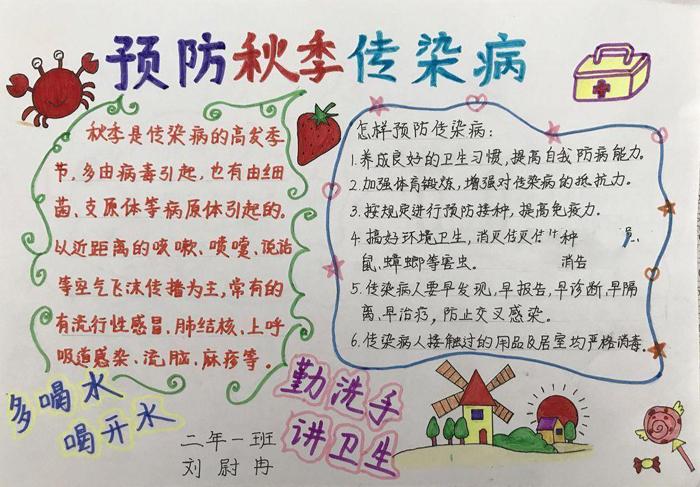 预防秋季传染病
秋季是传染病的高发季
节,多由病毒引起,也有由细
菌、支原体等病原体引起的。
以近距离的咳嗽、喷嚏、说话
等空气飞沫传播为主,常有的
有流行性感冒、肺结核、上呼
吸道感染、流脑、麻疹等。
怎样预防传染病:
1.养成良好的卫生习惯,提高自我防病能力。
2.加强体育锻炼,增强对传染病的抵抗力。
3.按规定进行预防接种,提高免疫力。
4.搞好环境卫生,消灭
鼠、蟑螂等害虫。
5.传染病人要早发现,早报告,早诊断,早隔
离,早治疗,防止交叉感染。
6.传染病人接触过的用品及居室均严格消毒。
多喝水
喝开水
勤洗手
讲卫生
二年一班
刘尉冉